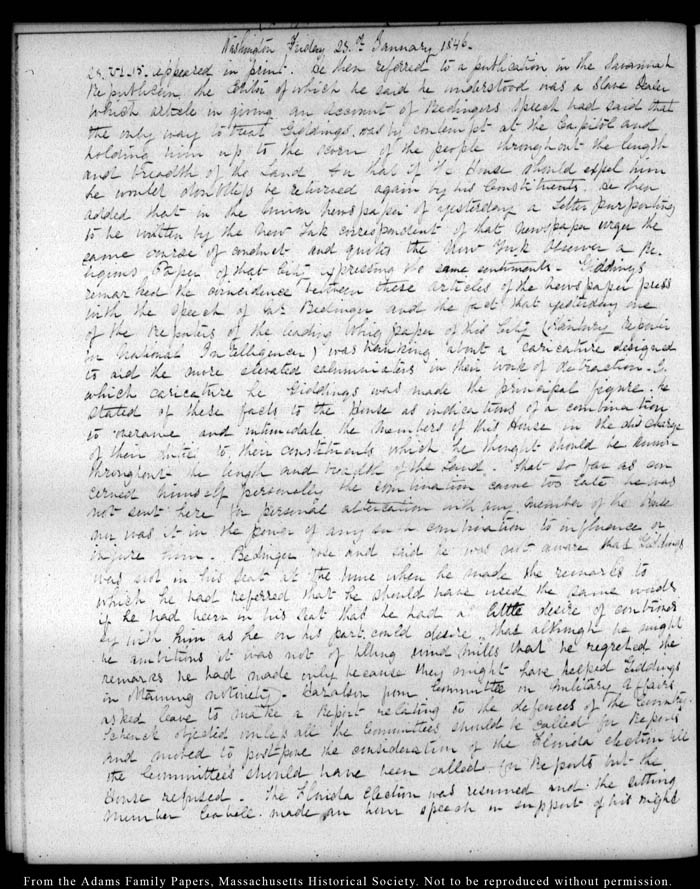 Washington Friday 23. January 1846.
23. VI.15. appeared in print. He then referred to a publication in the Savannah
Republican, the Editor of which he said he understood was a Slave Dealer
which article in giving an account of Bedingers speech had said that
the only way to treat Giddings, was by contempt at the Capitol and
holding him up to the scorn of the people throughout the length
and breadth of the Land that if the House should expel him
he would doubtless be returned again by his Constituents. He then
added that in the Union Newspaper of yesterday a Letter purporting
to be written by the New York correspondent of that Newspaper urges the
same course of conduct and quotes the New York Observer a Re-
ligious Paper of that City expressing the same sentiments. Giddings
remarked the coincidence between these articles of the newspaper press
with the speech of Mr Bedinger and the fact that yesterday one
of the Reporters of the leading Whig paper of this City ( reporter
for National Intelligencer) was hawking about a caricature designed
to aid the more elevated calumniators in their work of detraction. In
which caricature he Giddings was made the principal figure. He
stated of these facts to the House as indications of a combination
to overawe and intimidate the members of this House in the discharge
of their duties to their constituents which he thought should be known
throughout the length and breadth of the Land. That so far as con-
cerned himself personally the combination came too late he was
not sent here for personal altercation with any member of the House
nor was it in the power of any such combination to influence or
injure him. Bedinger rose and said he was not aware that Giddings
was not in his seat at the time when he made the remarks to
which he had referred that he should have used the same words
if he had been in his seat that he had a little desire of
with him as he on his part could desire. That although he might
be ambitious it was not of killing wind mills that he regretted the
remarks he had made only because they might have helped Giddings
in obtaining notoriety. Haralson from Committee on Military Affairs
asked leave to make a Report relating to the defences of the Country.
Schenck objected unless all the Committees should be called for Reports
and moved to postpone the consideration of the Florida election till
the Committees should have been called for Reports but the
House refused. The Florida Election was resumed and the sitting
member Cabell made an hour speech in support of his right
From the Adams Family Papers, Massachusetts Historical Society. Not to be reproduced without permission.